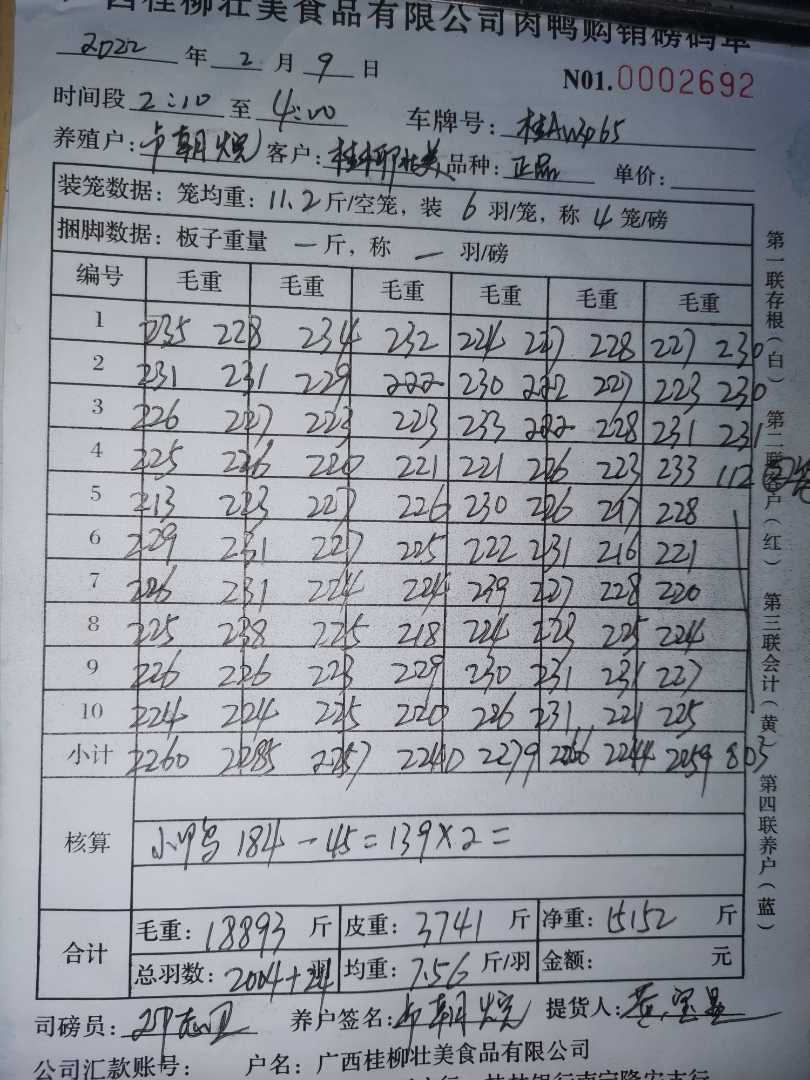 西桂柳壮美食品有限公司肉鸭购销磅码单
2022 年 2 月 9 日
N01.0002692
时间段 2:10 至 4:00 车牌号:
养殖户: 客户:桂柳壮美 品种:正品 单价:
装笼数据:笼均重:11.2斤/空笼,装 6 羽/笼,称 4 笼/磅
捆脚数据:板子重量 一 斤,称 一 羽/磅
编号 毛重 毛重 毛重 毛重 毛重 毛重
1 235 228 234 232 224 227 228 227 230
2 231 231 229 222 230 222 227 223 230
3 226 227 223 223 233 222 228 231 231
4 225 226 220 221 221 226 223 233 112
5 213 223 227 226 230 226 217 228
6 229 231 227 225 222 231 216 221
7 226 231 224 224 239 227 228 220
8 225 238 225 218 224 223 225 224
9 226 226 223 229 230 231 231 227
10 224 224 225 220 226 231 221 225
小计 2260 2285 2257 2240 2279 2266 2244 2259 803
核算
184-45=139×2=
合计
毛重:18893 斤 皮重:3741 斤 净重:15152 斤
总羽数:2004+24 羽 均重:7.56 斤/羽 金额: 元
司磅员: 养户签名: 提货人:
公司汇款账号: 户名:广西桂柳壮美食品有限公司
第一联存根(白)
第二联客户(红)
第三联会计(黄)
第四联养户(蓝)